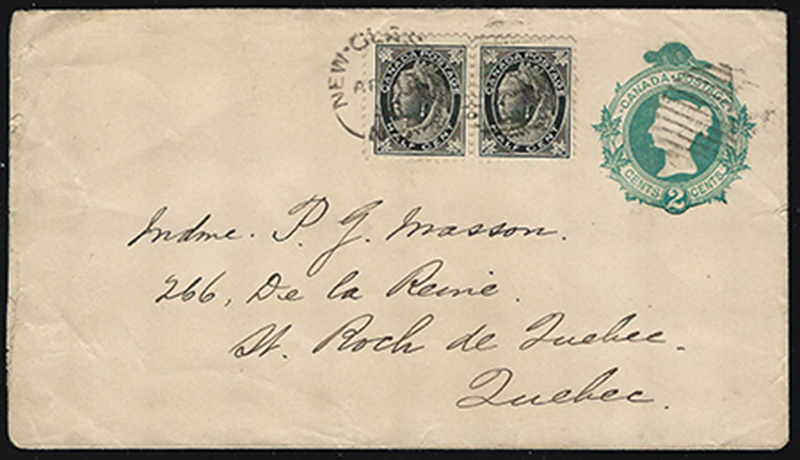 NEW
CANADA POSTAGE
HALF CENT
CANADA POSTAGE
HALF CENT
CANADA POSTAGE
CENTS 2 CENTS
Mdme. P. G. Masson.
266, De la Reine.
St. Roch de Quebec.
Quebec.